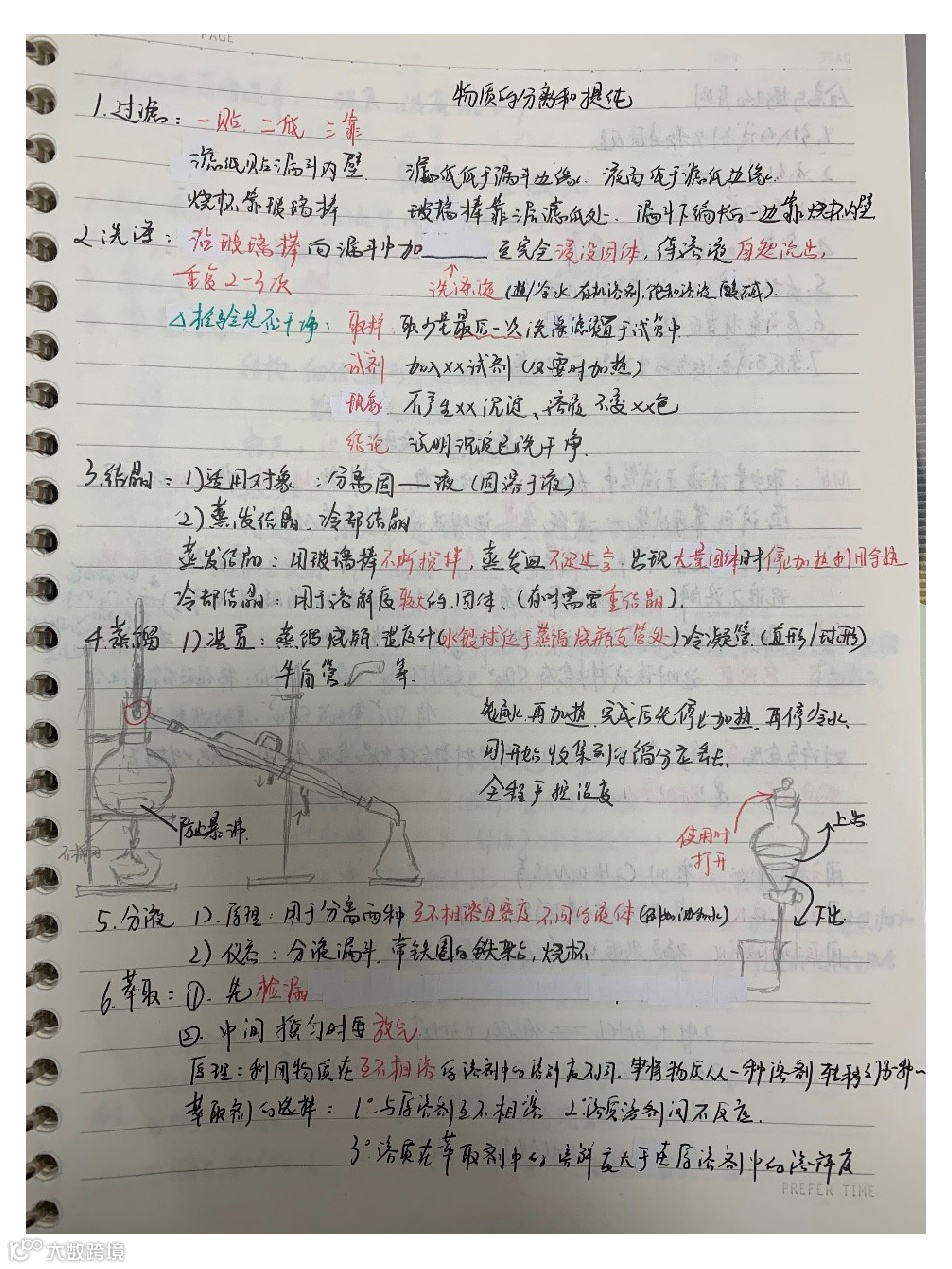 PAGE
物质的分离和提纯
1.过滤：一贴 二低 三靠
滤纸贴漏斗内壁 滤纸低于漏斗边缘 液面低于滤纸边缘
烧杯靠玻璃棒 玻璃棒靠三层滤纸处 漏斗下端长的一边靠烧杯内壁
2.洗涤：沿玻璃棒向漏斗中加 至完全浸没固体，待溶液自然流出，
重复2-3次 洗涤液 (冰水 有机溶剂 饱和溶液 酸碱)
△检验是否干净：取样 取少量最后一次洗涤滤液置于试管中
试剂 加入XX试剂(必要时加热)
现象 不产生XX沉淀、溶液不变XX色
结论 证明沉淀已洗干净.
3.结晶：1)适用对象：分离固—液(固溶于液)
2)蒸发结晶 冷却结晶
蒸发结晶：用玻璃棒不断搅拌，蒸发皿 出现大量固体时停止加热利用余热
冷却结晶：用于溶解度较大的固体.(有时需要重结晶).
4.蒸馏 1)装置：蒸馏烧瓶 温度计(水银球位于蒸馏烧瓶支管处)冷凝管(直形/球形)
牛角管 等.
先通水，再加热，完成后先停止加热，再停冷水
刚开始收集到的馏分应弃去.
全程严控温度
防止暴沸.
使用时
打开
上出
下出
5.分液 1).原理：用于分离两种互不相溶且密度不同的液体
2)仪器：分液漏斗，带铁圈的铁架台，烧杯
6.萃取：①.先检漏
②.中间摇匀时要放气
原理：利用物质在互不相溶的溶剂中的溶解度不同.使得物质从一种溶剂转移到另一种
萃取剂的选择：1°.与原溶剂互不相溶 2°溶质溶剂间不反应.
3°溶质在萃取剂中的溶解度大于在原溶剂中的溶解度
PREFER TIME
大数跨境